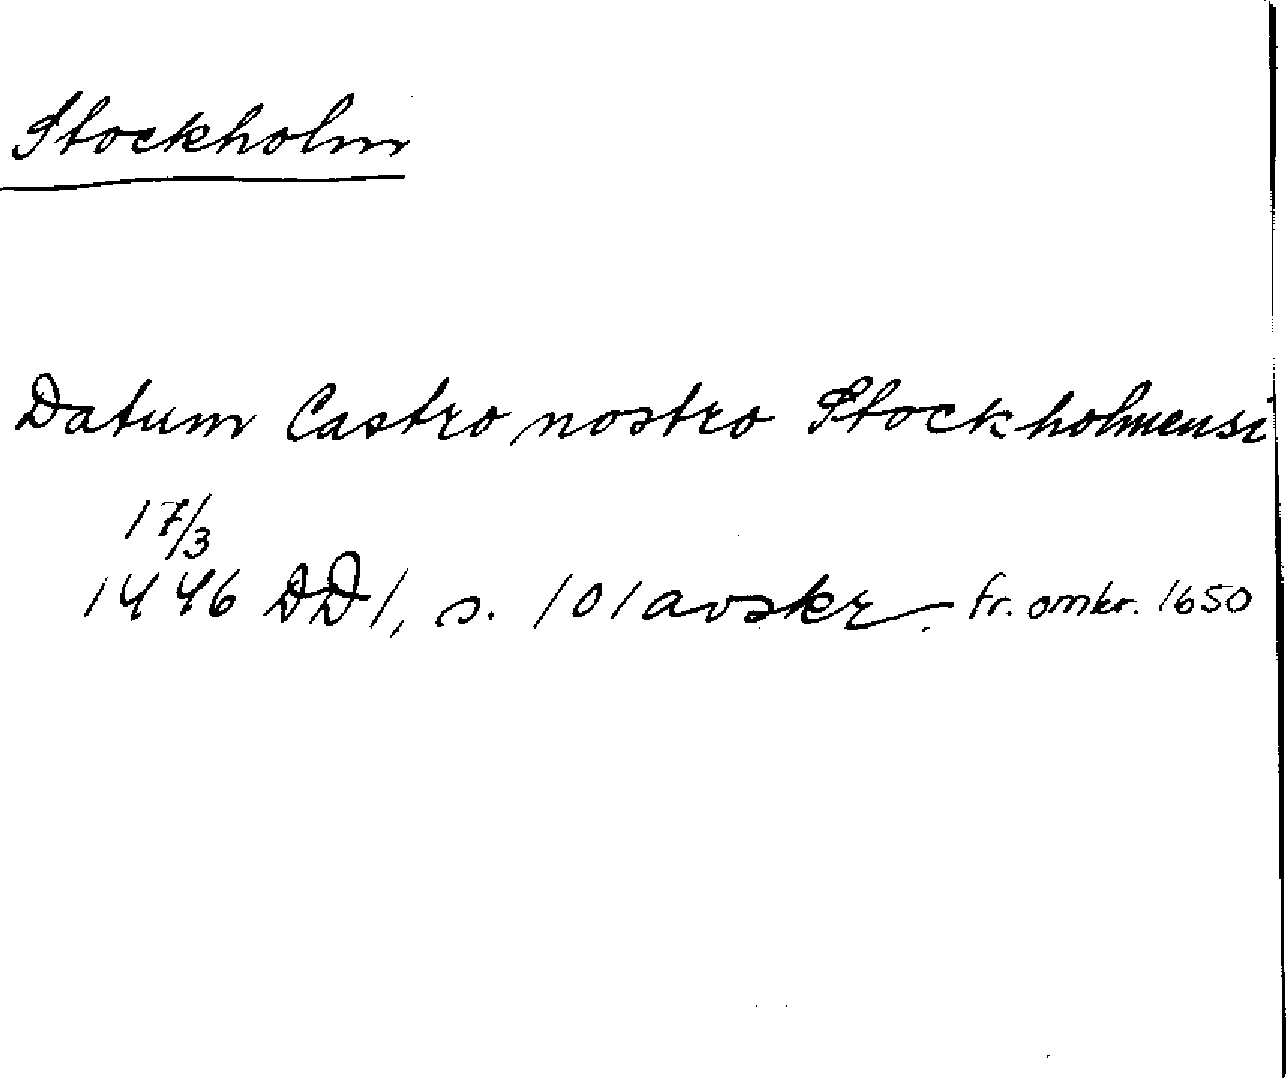 Stockholm
Datum Castro nostro Stockholmensi
17/3
1446 DD1, s. 101 avskr. fr. omkr. 1650